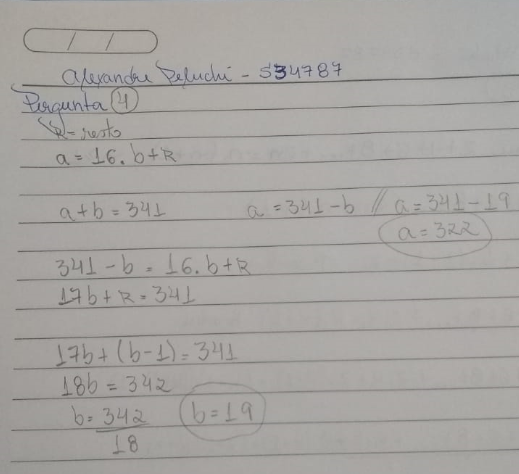 / /
Alexandre Peluchi - 534787
Pergunta 4
R = resto
a = 16.b+R
a+b = 341 a = 341-b // a = 341-19
a = 322
341-b = 16.b+R
17b+R = 341
17b+(b-1) = 341
18b = 342
b = 342/18 b = 19